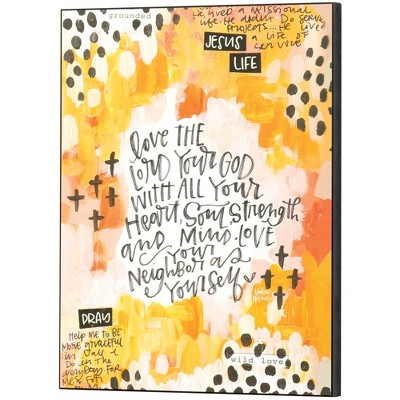 grounded
He lived a missional
life. He didn't Do service
projects... He lived
a life of
service
JESUS
LIFE
Love THE
LORD Your GOD
WITH ALL Your
Heart, Soul, Strength
and Mind. LOVE
Your
Neighbor as
Yourself
PRAY
HELP ME TO BE
MORE graceful
in all I
Do in THE
everyday FOR
wild love